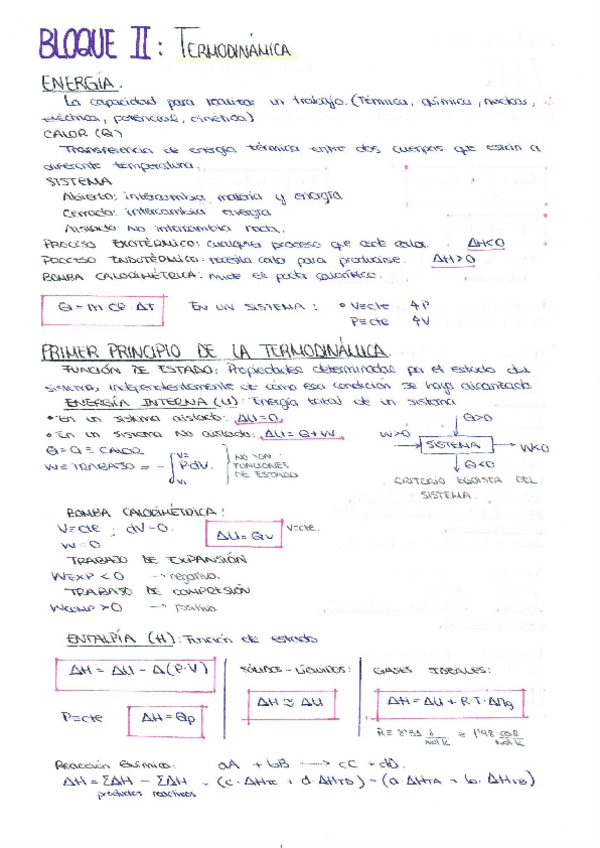 BLOQUE II: TERMODINÁMICA
ENERGÍA.
La capacidad para realizar un trabajo. (Térmica, química, nuclear,
eléctrica, potencial, cinética)
CALOR (Q)
Transferencia de energía térmica entre dos cuerpos que están a
diferente temperatura.
SISTEMA
Abierto: intercambia materia y energía
Cerrado: intercambia energía
Aislado: No intercambia nada.
PROCESO EXOTÉRMICO: cualquier proceso que cede calor. ΔH<0
PROCESO ENDOTÉRMICO: necesita calor para producirse. ΔH>0
BOMBA CALORIMÉTRICA: mide el poder calorífico.
Q = m·Ce·ΔT EN UN SISTEMA: • V=cte
P=cte
PRIMER PRINCIPIO DE LA TERMODINÁMICA.
FUNCIÓN DE ESTADO: Propiedades determinadas por el estado del
sistema, independientemente de cómo esa condición se haya alcanzado.
ENERGÍA INTERNA (U): Energía total de un sistema
• En un sistema aislado: ΔU=0.
• En un sistema NO aislado: ΔU = Q+W.
Q = CALOR
W = TRABAJO = - ∫ V2 V1 PdV.
NO SON
FUNCIONES
DE ESTADO
Q>0
W>0 SISTEMA W<0
Q<0
CRITERIO EGOÍSTA DEL
SISTEMA.
BOMBA CALORIMÉTRICA:
V=cte ; dV=0. ΔU=Qv V=cte.
W=0
TRABAJO DE EXPANSIÓN
WEXP < 0 → negativo.
TRABAJO DE COMPRESIÓN
WCOMP > 0 → positivo
ENTALPÍA (H): Función de estado
ΔH = ΔU - Δ(P·V) SÓLIDOS - LÍQUIDOS: GASES IDEALES:
P=cte ΔH = Qp ΔH ≈ ΔU ΔH = ΔU + R·T·Δng
R = 8'31 J/mol K = 1'98 cal/mol K
Reacción Química: aA + bB → cC + dD.
ΔH = ΣΔH - ΣΔH
productos reactivos